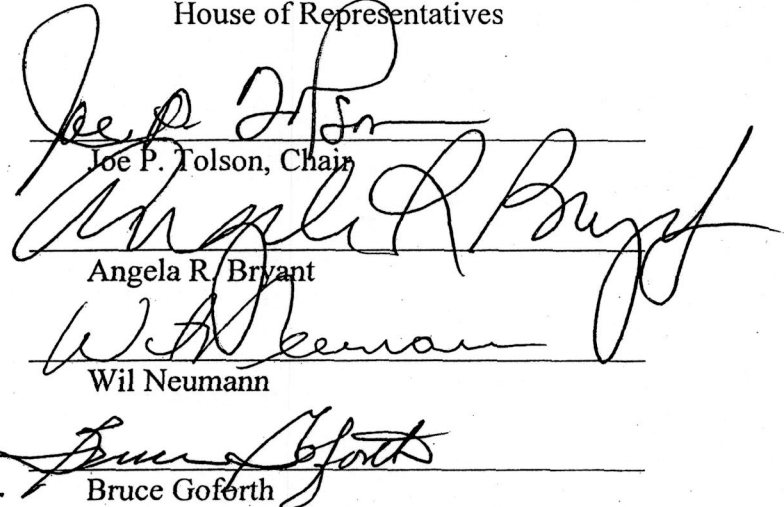 House of Representatives
Joe P. Tolson
Joe P. Tolson, Chair
Angela R Bryant
Angela R. Bryant
Wil Neumann
Wil Neumann
Bruce Goforth
Bruce Goforth